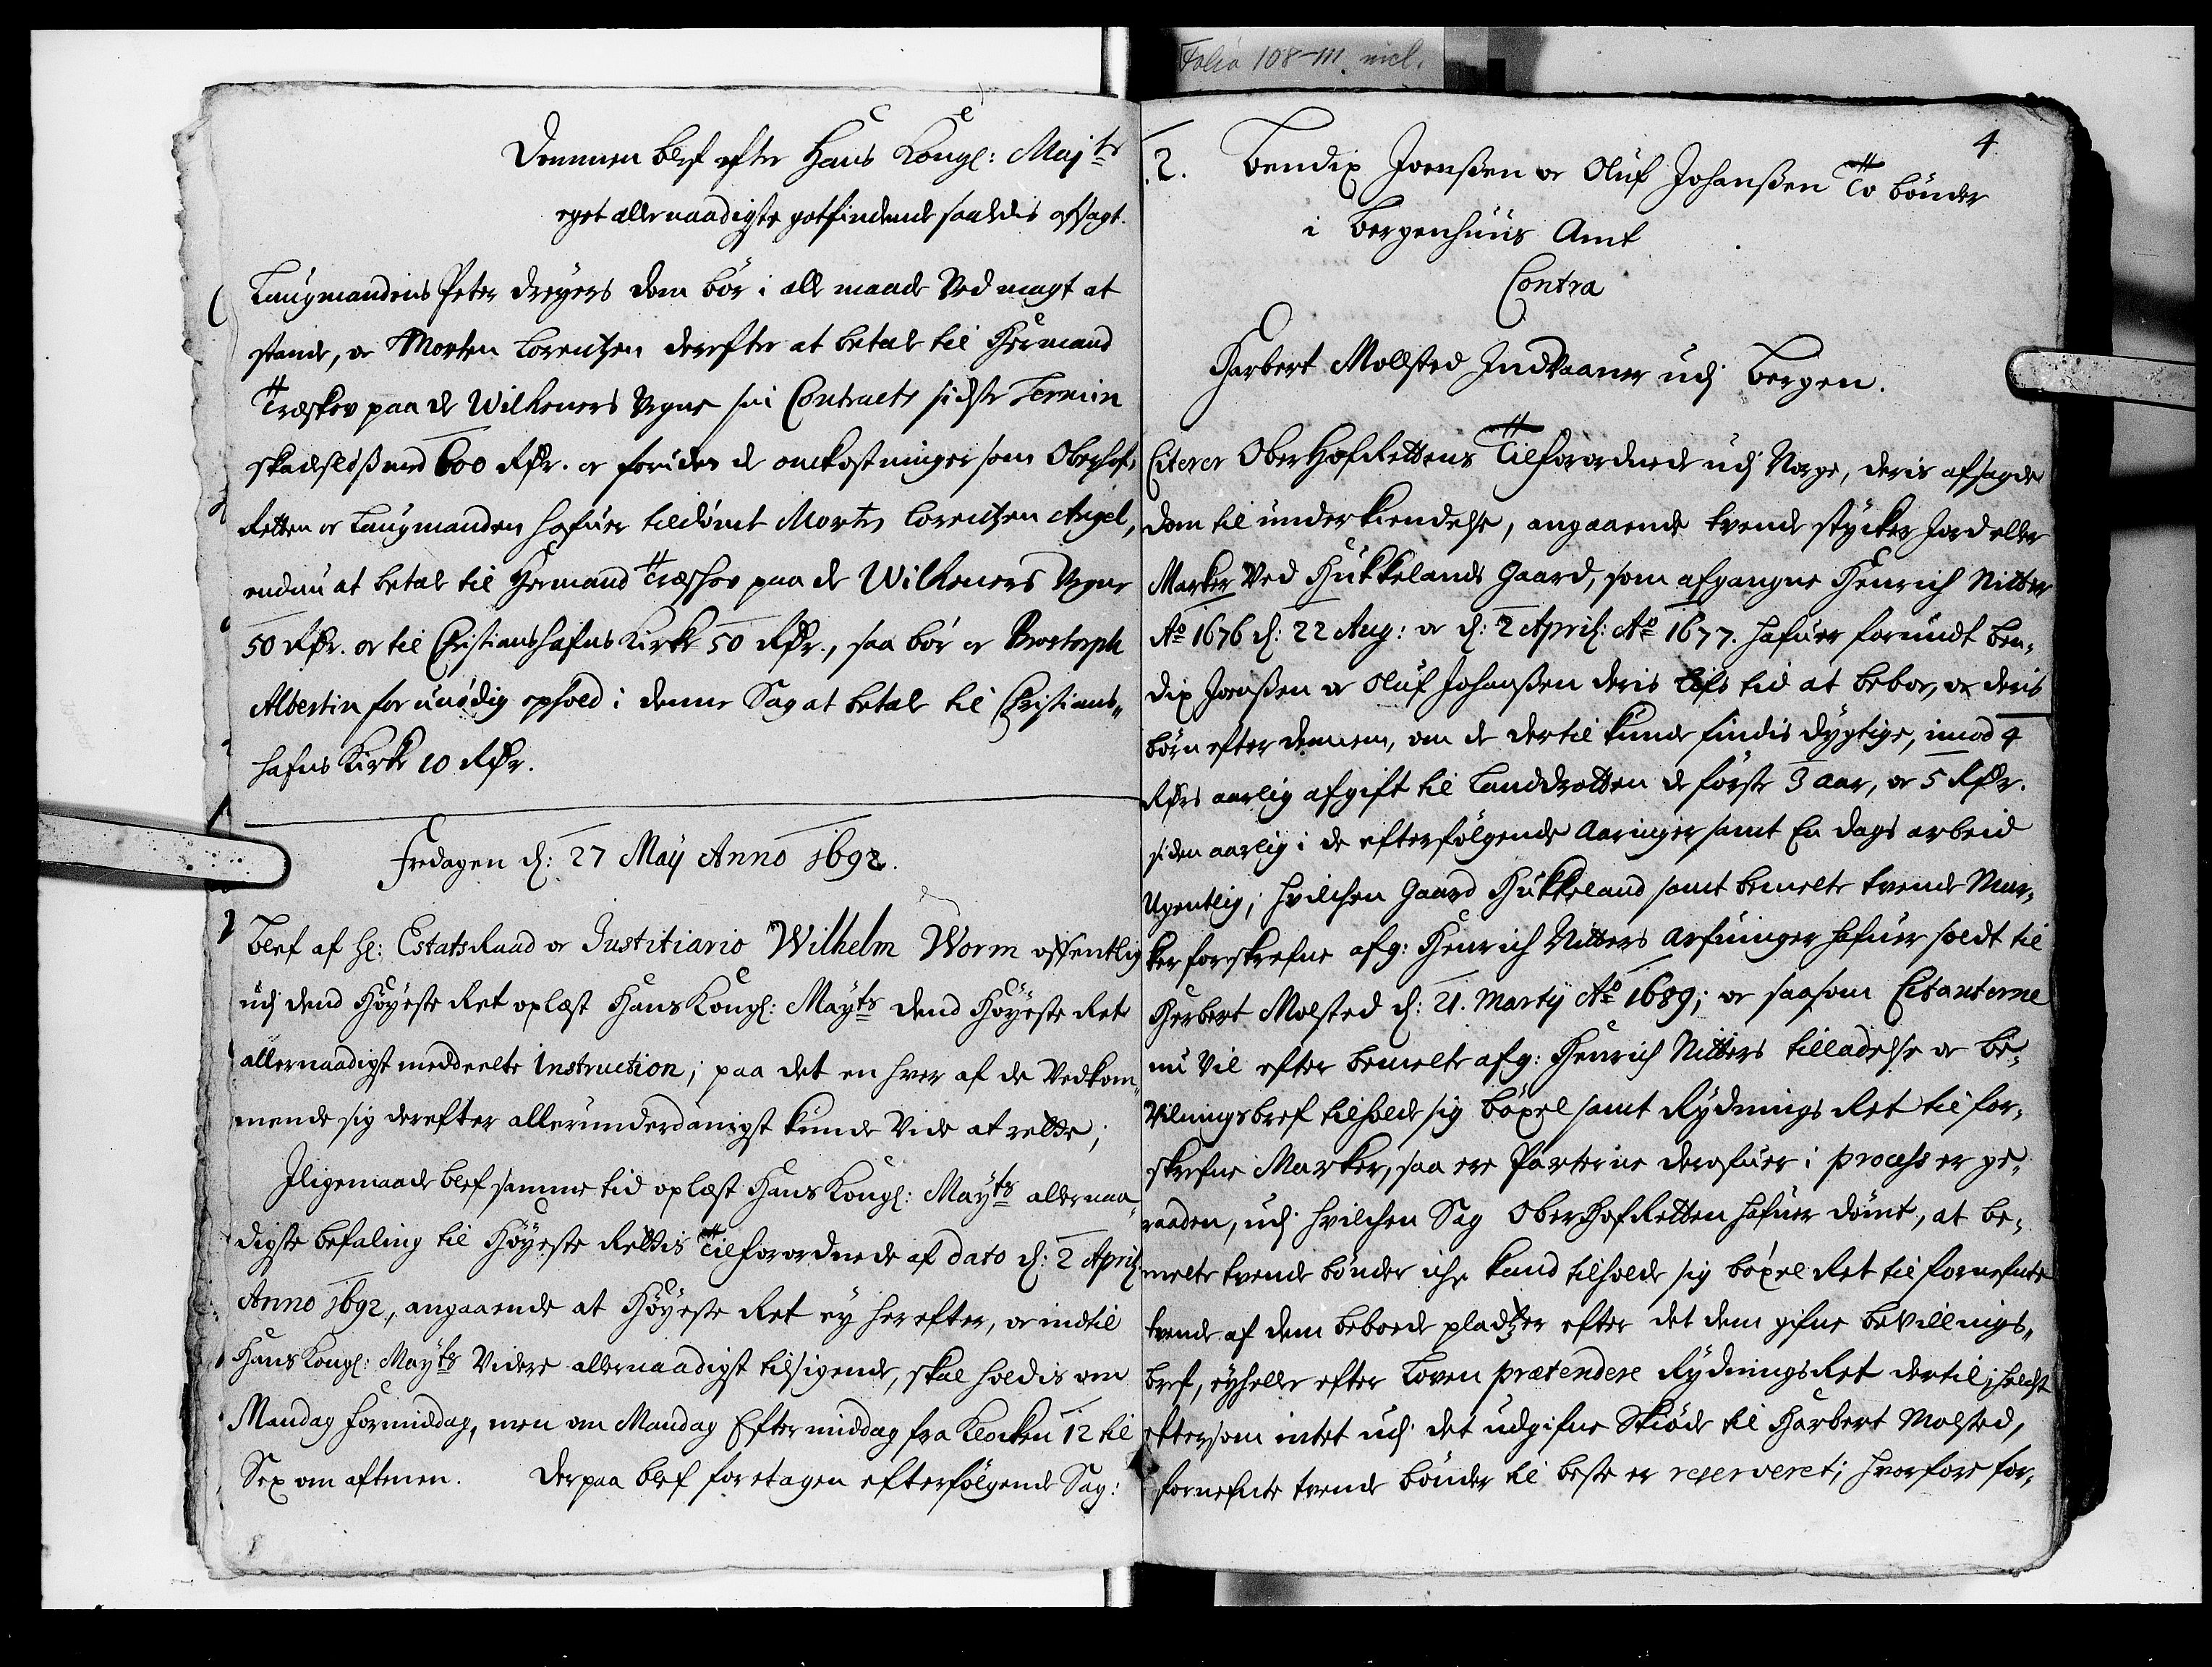 Folio 108-111 incl.
Dommen blef efter Hans Kongl: Majts
eget allernaadigste gotfindende saaledis afsagt.
Laugmandens Peter Dreyers dom bör i alle maade Ved magt at
stande, og Morten Lorentzen derefter at betale til Hermand
Træskov paa de Wilkeners Vegne sin Contracts sidste Termin
skadeslöß med 600 Rdr. og foruden de omkostninger som Oberhof-
Retten og Laugmanden hafuer tildömt Morten Lorentzen Angel,
endnu at betale til Hermand Træskov paa de Wilkeners Vegne
50 Rdr. og til Christianshafns Kirke 50 Rdr., saa bör og Brostorph
Albertin for unödig ophold i denne Sag at betale til Christians„
hafns Kirke 10 Rdr.
Fredagen d: 27 Maÿ Anno 1692.
Blef af Hl: EstatsRaad og Justitiario Wilhelm Worm offentlig
udj dend Höÿeste Ret oplæst Hans Kongl: Maÿts dend Höÿeste Ret
allernaadigst meddeelte Instruction; paa det en hver af de Vedkom„
mende sig derefter allerunderdanigst kunde Vide at rette;
Iligemaade blef samme tid oplæst Hans Kongl: Maÿts allernaa„
digste befaling til Höÿeste Rettis Tilforordnede af dato d: 2 April
Anno 1692., angaaende at Höÿeste Ret eÿ herefter, og indtil
Hans Kongl: Maÿts Videre allernaadigst tilsigende, skal holdis om
Mandag formiddag, men om Mandag Eftermiddag fra Klocken 12 til
Sex om aftenen. Derpaa blef foretagen efterfölgende Sag:
4
2. Bendix Joenßen og Oluf Johanßen To bönder
i Bergenhuus Amt
Contra
Harbert Mollsted Indvaaner udj Bergen.
Citerer OberHofRettens Tilforordnede udj Norge, deris afsagde
dom til underkiendelse, angaaende tvende stÿcker Jord eller
Marker Ved Hukkelands Gaard, som afgangne Henrich Nitter
Ao 1676 d: 22 Aug: og d: 2 April: Ao 1677. hafuer forundt Ben„
dix Joenßen og Oluf Johanßen deris lifs tid at beboe, og deris
börn efter dennem, om de dertil kunde findis dÿgtige, imod 4
Rdrs aarlig afgift til Landdrotten de förste 3 aar, og 5 Rdr.
siden aarlig i de efterfölgende Aaringer samt En dags arbeid
Ugentlig; hvilchen Gaard Hukkeland samt bemelte tvende Mar„
ker forskrefne afg: Henrich Nitters Arfuinger hafuer soldt til
Herbert Molsted d: 21. Martÿ Ao 1689; og saasom Citanterne
nu Vil efter bemelte afg: Henrich Nitters tilladelse og be„
Vilningsbref tilholde sig böxel samt Rÿdnings Ret til for„
skrefne Marker, saa ere Parterne derofuer i process er ge„
raaden, udj hvilchen Sag OberHofRetten hafuer dömt, at be„
melte tvende bönder iche kand tilholde sig böxel Ret til fornefnte
tvende af dem beboede pladtzer efter det dem gifne beVillnings„
bref, eÿheller efter Loven prætendere RÿdningsRet dertil; helst
eftersom intet udj det udgifne Skiöde til Harbert Molsted,
fornefnte tvende bönder til beste er reserveret; hvorfore for„